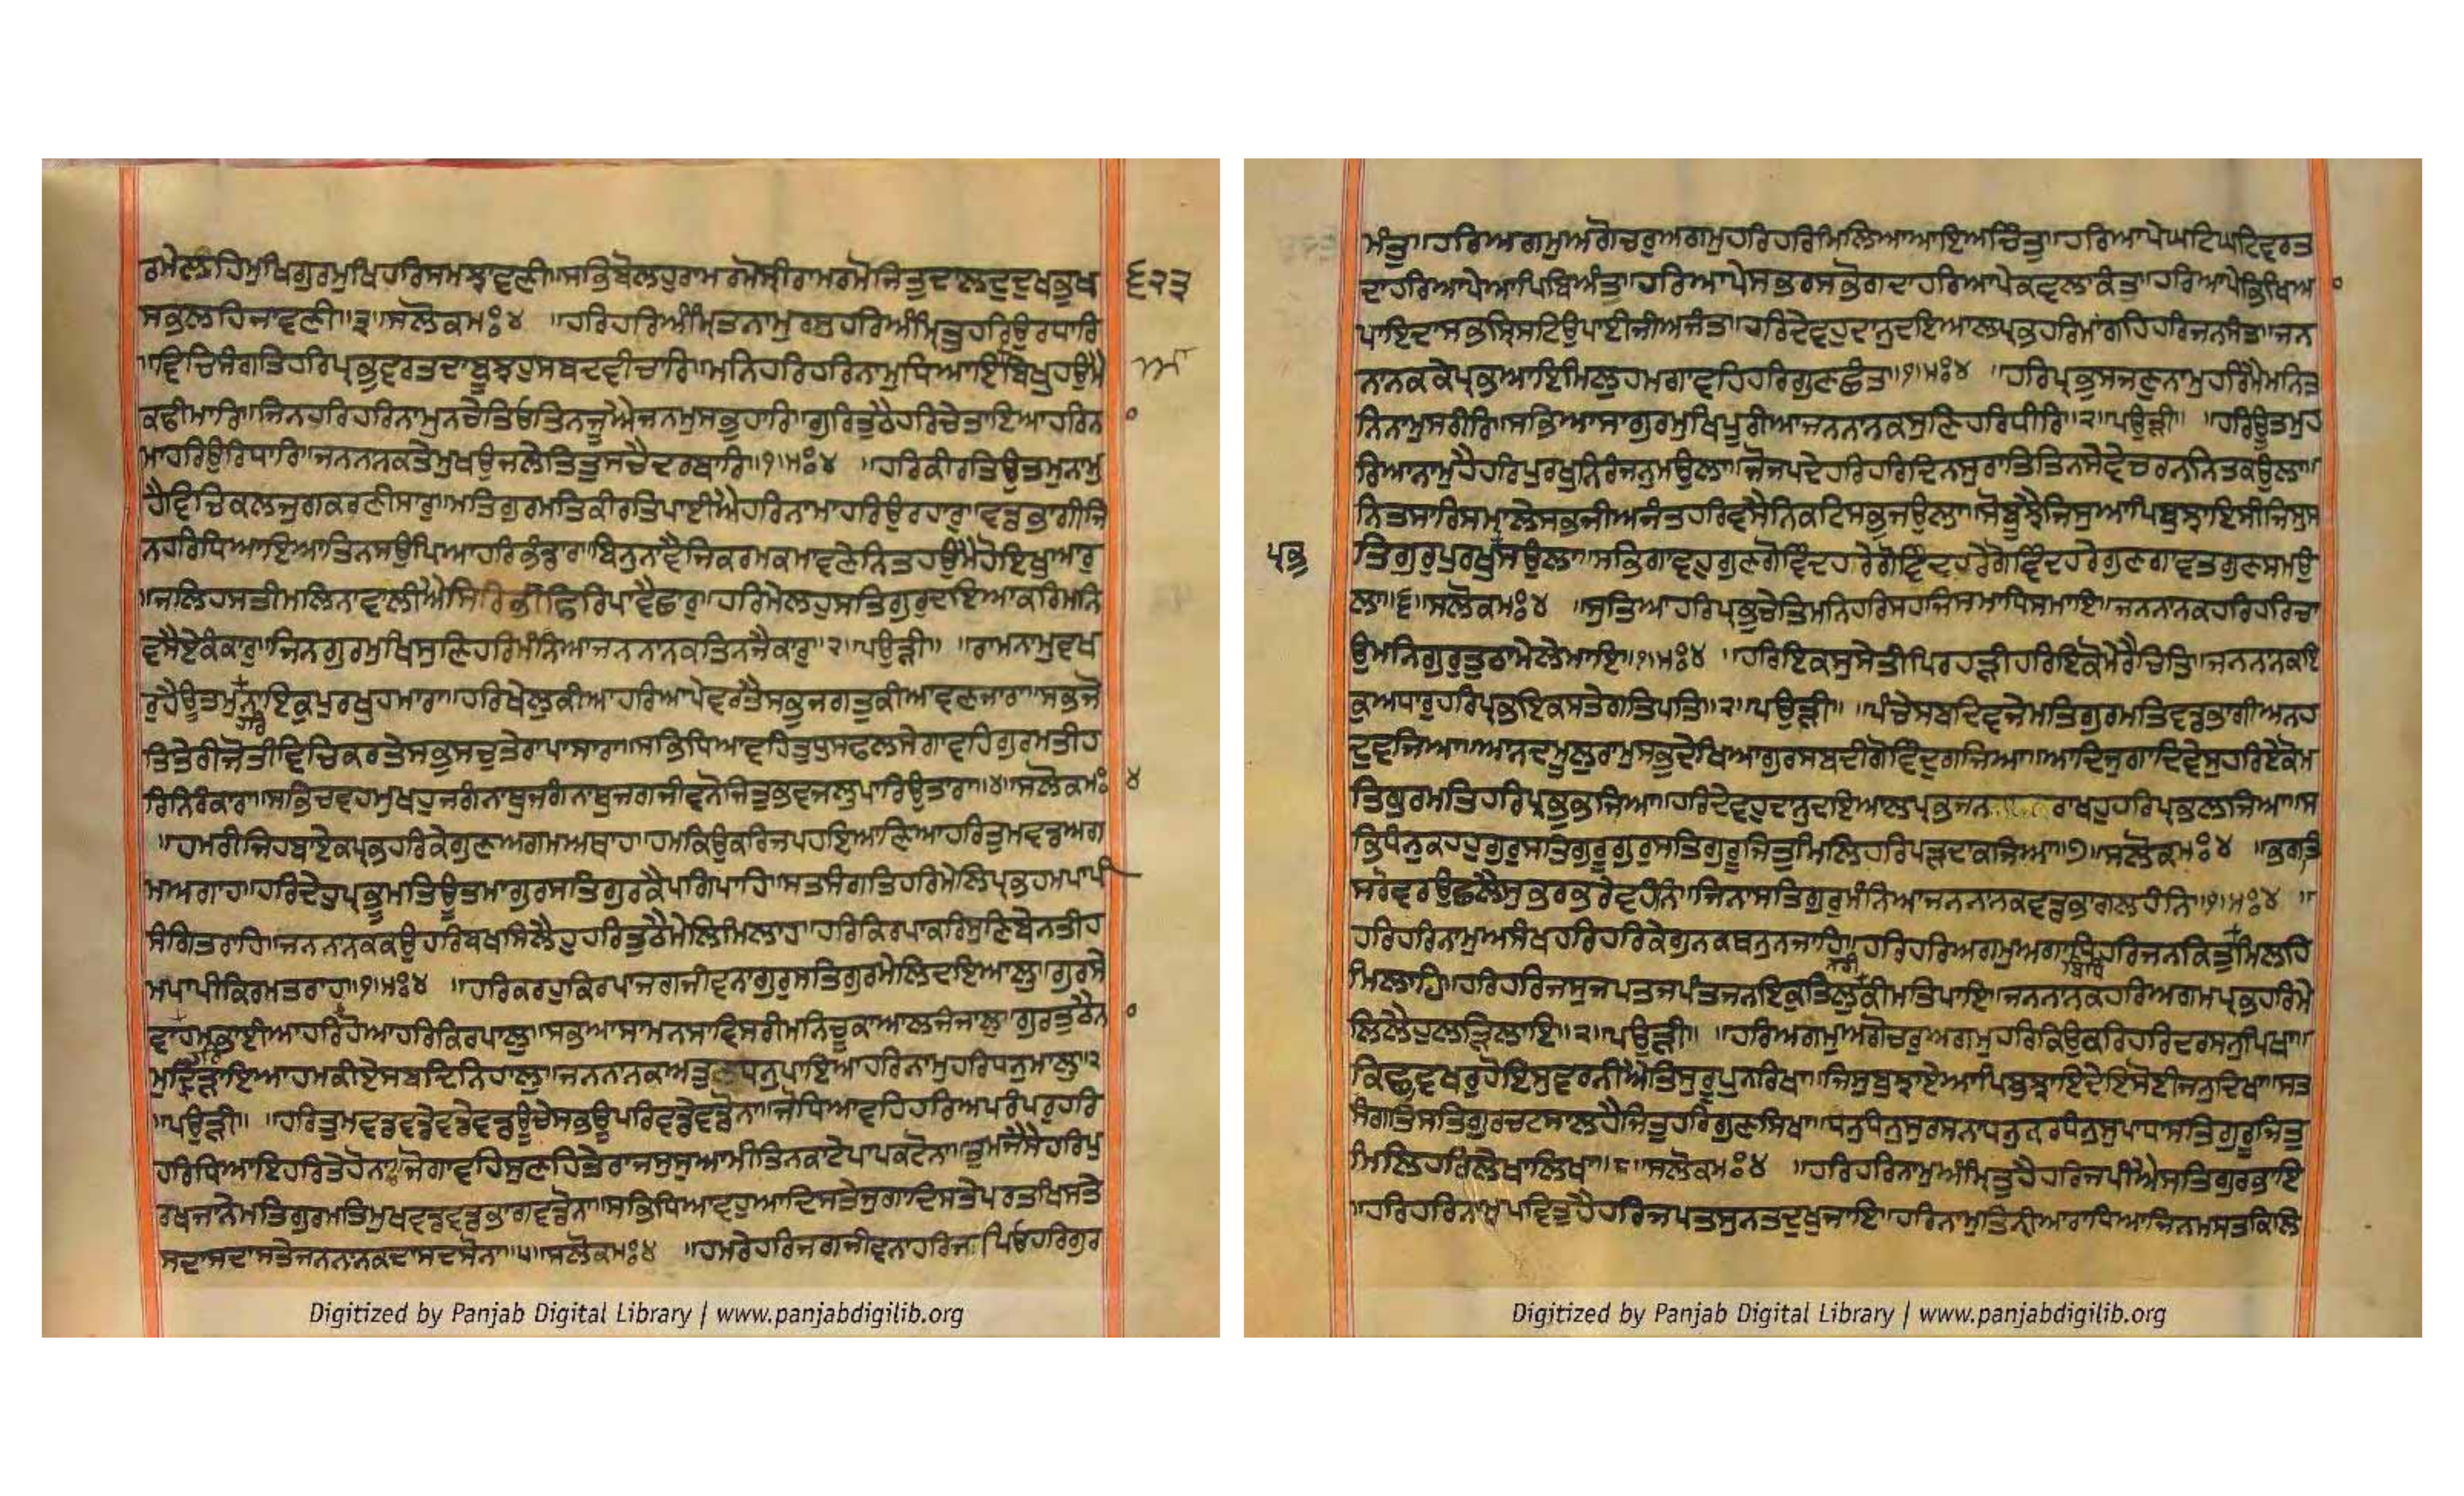 ਰਮੇਲੰਹਿਮੁਖਿਗੁਰਮੁਖਿਹਰਿਸਮਝਾਵਣੀ॥ਸਭਿਬੋਲਹੁਰਾਮਰਮੋਸ੍ਰੀਰਾਮਰਮੋਜਿਤੁਦਾਲਦੁਦੁਖਭੁਖ ੬੨੩
ਸਭੁਲਹਿਜਾਵਣੀ॥੩॥ਸਲੋਕਮਃ੪ ॥ਹਰਿਹਰਿਅੰਮ੍ਰਿਤਨਾਮੁਰਸੁਹਰਿਅੰਮ੍ਰਿਤੁਹਰਿਉਰਧਾਰਿ
॥ਵਿਚਿਸੰਗਤਿਹਰਿਪ੍ਰਭੁਵਰਤਦਾਬੂਝਹੁਸਬਦਵੀਚਾਰਿ॥ਮਨਿਹਰਿਹਰਿਨਾਮੁਧਿਆਇਬਿਖੁਹਉਮੈ
ਕਢੀਮਾਰਿ॥ਜਿਨਹਰਿਹਰਿਨਾਮੁਨਚੇਤਿਓਤਿਨਜੂਐਜਨਮੁਸਭੁਹਾਰਿ॥ਗੁਰਿਤੁਠੈਹਰਿਚੇਤਾਇਆਹਰਿਨ
ਮਾਹਰਿਉਰਿਧਾਰਿ॥ਜਨਨਨਕਤੇਮੁਖਉਜਲੇਤਿਤੁਸਚੈਦਰਬਾਰਿ॥੧॥ਮਃ੪ ॥ਹਰਿਕੀਰਤਿਉਤਮੁਨਾਮੁ
ਹੈਵਿਚਿਕਲਜੁਗਕਰਣੀਸਾਰੁ॥ਮਤਿਗੁਰਮਤਿਕੀਰਤਿਪਾਈਐਹਰਿਨਾਮਾਹਰਿਉਰਹਾਰੁ॥ਵਡਭਾਗੀਜਿ
ਨਹਰਿਧਿਆਇਆਤਿਨਸਉਪਿਆਹਰਿਭੰਡਾਰਾ॥ਬਿਨੁਨਾਵੈਜਿਕਰਮਕਮਾਵਣੇਨਿਤਹਉਮੈਹੋਇਖੁਆਰੁ
॥ਜਲਿਹਸਤੀਮਲਿਨਾਵਾਲੀਐਸਿਰਿਭੀਫਿਰਿਪਾਵੈਛਾਰੁ॥ਹਰਿਮੇਲਹੁਸਤਿਗੁਰੁਦਇਆਕਰਿਮਨਿ
ਵਸੈਏਕੰਕਾਰੁ॥ਜਿਨਗੁਰਮੁਖਿਸੁਣਿਹਰਿਮੰਨਿਆਜਨਨਾਨਕਤਿਨਜੈਕਾਰੁ॥੨॥ਪਉੜੀ॥ ॥ਰਾਮਨਾਮੁਵਖ
ਰੁਹੈਊਤਮੁਨਾਇਕੁਪੁਰਖੁਹਮਾਰਾ॥ਹਰਿਖੇਲੁਕੀਆਹਰਿਆਪੇਵਰਤੈਸਭੁਜਗਤੁਕੀਆਵਣਜਾਰਾ॥ਸਭਜੋ
ਤਿਤੇਰੀਜੋਤੀਵਿਚਿਕਰਤੇਸਭੁਸਚੁਤੇਰਾਪਾਸਾਰਾ॥ਸਭਿਧਿਆਵਹਿਤੁਧੁਸਫਲਸੇਗਾਵਹਿਗੁਰਮਤੀਹ
ਰਿਨਿਰੰਕਾਰਾ॥ਸਭਿਚਵਹੁਮੁਖਹੁਜਗੰਨਾਥੁਜਗੰਨਾਥੁਜਗਜੀਵਨੋਜਿਤੁਭਵਜਲੁਪਾਰਿਉਤਾਰਾ॥੪॥ਸਲੋਕਮਃ ੪
॥ਹਮਰੀਜਿਹਬਾਏਕਪ੍ਰਭਹਰਿਕੇਗੁਣਅਗਮਅਥਾਹਾ॥ਹਮਕਿਉਕਰਿਜਪਹਇਆਣਿਆਹਰਿਤੁਮਵਡਅਗ
ਮਅਗਾਹ॥ਹਰਿਦੇਹੁਪ੍ਰਭੂਮਤਿਊਤਮਾਗੁਰਸਤਿਗੁਰਕੈਪਗਿਪਾਹਿ॥ਸਤਸੰਗਤਿਹਰਿਮੇਲਿਪ੍ਰਭਹਮਪਾਪੀ
ਸੰਗਿਤਰਾਹਿ॥ਜਨਨਾਨਕਕਉਹਰਿਬਖਸਿਲੈਹੁਹਰਿਤੁਠੈਮੇਲਿਮਿਲਾਹਾ॥ਹਰਿਕਿਰਪਾਕਰਿਸੁਣਿਬੇਨਤੀਹ
ਮਪਾਪੀਕਿਰਮਤਰਾਹ॥੧॥ਮਃ੪ ॥ਹਰਿਕਰਹੁਕਿਰਪਾਜਗਜੀਵਨਾਗੁਰੁਸਤਿਗੁਰਮੇਲਿਦਇਆਲੁ॥ਗੁਰਸੇ
ਵਾਹਮਭਾਈਆਹਰਿਹੋਆਹਰਿਕਿਰਪਾਲੁ॥ਸਭਆਸਾਮਨਸਾਵਿਸਰੀਮਨਿਚੂਕਾਆਲਜੰਜਾਲੁ॥ਗੁਰਤੁਠੈਨ
ਮੁਦ੍ਰਿੜਾਇਆਹਮਕੀਏਸਬਦਿਨਿਹਾਲੁ॥ਜਨਨਾਨਕਅਤੁਟਧਨੁਪਾਇਆਹਰਿਨਾਮੁਹਰਿਧਨੁਮਾਲੁ॥੨
॥ਪਉੜੀ॥ ॥ਹਰਿਤੁਮਵਡਵਡੇਵਡੇਵਡਊਚੇਸਭਊਪਰਿਵਡੇਵਡੋਨਾ॥ਜੋਧਿਆਵਹਿਹਰਿਅਪਰੰਪਰੁਹਰਿ
ਹਰਿਧਿਆਇਹਰਿਤੇਹੋਨਾ॥ਜੋਗਾਵਹਿਸੁਣਹਿਤੇਰਾਜਸੁਸੁਆਮੀਤਿਨਕਾਟੇਪਾਪਕਟੋਨਾ॥ਤੁਮਜੈਸੇਹਰਿਪੁ
ਰਖਜਾਨੇਮਤਿਗੁਰਮਤਿਮੁਖਵਡਵਡਭਾਗਵਡੋਨਾ॥ਸਭਿਧਿਆਵਹੁਆਦਿਸਤੇਜੁਗਾਦਿਸਤੇਪਰਤਖਿਸਤੇ
ਸਦਾਸਦਾਸਤੇਜਨਨਾਨਕਦਾਸਦਸੋਨਾ॥੫॥ਸਲੋਕਮਃ੪ ॥ਹਮਰੇਹਰਿਜਗਜੀਵਨਾਹਰਿਜਪਿਓਹਰਿਗੁਰ
ਮੰਤੁ॥ਹਰਿਅਗਮੁਅਗੋਚਰੁਅਗਮੁਹਰਿਹਰਿਮਿਲਿਆਆਇਅਚਿੰਤੁ॥ਹਰਿਆਪੇਘਟਿਘਟਿਵਰਤ
ਦਾਹਰਿਆਪੇਆਪਿਬਿਅੰਤੁ॥ਹਰਿਆਪੇਸਭਰਸਭੋਗਦਾਹਰਿਆਪੇਕਵਲਾਕੰਤੁ॥ਹਰਿਆਪੇਭਿਖਿਆ
ਪਾਇਦਾਸਭਸ੍ਰਿਸਟਿਉਪਾਈਜੀਅਜੰਤ॥ਹਰਿਦੇਵਹੁਦਾਨੁਦਇਆਲਪ੍ਰਭਹਰਿਮਾਂਗਹਿਹਰਿਜਨਸੰਤ॥ਜਨ
ਨਾਨਕਕੇਪ੍ਰਭਆਇਮਿਲੁਹਮਗਾਵਹਿਹਰਿਗੁਣਛੰਤ॥੧॥ਮਃ੪ ॥ਹਰਿਪ੍ਰਭੁਸਜਣੁਨਾਮੁਹਰਿਮੈਮਨਿਤ
ਨਿਨਾਮੁਸਰੀਰਿ॥ਸਭਿਆਸਾਗੁਰਮੁਖਿਪੂਰੀਆਜਨਨਾਨਕਸੁਣਿਹਰਿਧੀਰਿ॥੨॥ਪਉੜੀ॥ ॥ਹਰਿਊਤਮੁਹ
ਰਿਆਨਾਮੁਹੈਹਰਿਪੁਰਖੁਨਿਰੰਜਨੁਮਉਲਾ॥ਜੋਜਪਦੇਹਰਿਹਰਿਦਿਨਸੁਰਾਤਿਤਿਨਸੇਵੇਚਰਨਨਿਤਕਉਲਾ॥
ਨਿਤਸਾਰਿਸਮ੍ਹਾਲੇਸਭਜੀਅਜੰਤਹਰਿਵਸੈਨਿਕਟਿਸਭਜਉਲਾ॥ਸੋਬੂਝੈਜਿਸੁਆਪਿਬੁਝਾਇਸੀਜਿਸੁਸ
ਪ੍ਰਭੁ ਤਿਗੁਰੁਪੁਰਖੁਸਉਲਾ॥ਸਭਿਗਾਵਹੁਗੁਣਗੋਵਿੰਦਹਰੇਗੋਵਿੰਦਹਰੇਗੋਵਿੰਦਹਰੇਗੁਣਗਾਵਤਗੁਣਸਮਉ
ਲਾ॥੬॥ਸਲੋਕਮਃ੪ ॥ਸੁਤਿਆਹਰਿਪ੍ਰਭੁਚੇਤਿਮਨਿਹਰਿਸਹਜਿਸਮਾਧਿਸਮਾਇ॥ਜਨਨਾਨਕਹਰਿਹਰਿਚਾ
ਉਮਨਿਗੁਰੁਤੁਠਾਮੇਲੇਮਾਇ॥੧॥ਮਃ੪ ॥ਹਰਿਇਕਸੁਸੇਤੀਪਿਰਹੜੀਹਰਿਇਕੋਮੇਰੈਚਿਤਿ॥ਜਨਨਨਕਇ
ਕੁਅਧਾਰੁਹਰਿਪ੍ਰਭਇਕਸਤੇਗਤਿਪਤਿ॥੨॥ਪਉੜੀ॥ ॥ਪੰਚੇਸਬਦਿਵਜੇਮਤਿਗੁਰਮਤਿਵਡਭਾਗੀਅਨਹ
ਦੁਵਜਿਆ॥ਅਨਦਮੂਲੁਰਾਮੁਸਭੁਦੇਖਿਆਗੁਰਸਬਦੀਗੋਵਿੰਦੁਗਜਿਆ॥ਆਦਿਜੁਗਾਦਿਵੇਸੁਹਰਿਏਕੋਮ
ਤਿਗੁਰਮਤਿਹਰਿਪ੍ਰਭੁਭਜਿਆ॥ਹਰਿਦੇਵਹੁਦਾਨੁਦਇਆਲਪ੍ਰਭਜਨ ਰਾਖਹੁਹਰਿਪ੍ਰਭਲਾਜਿਆ॥ਸ
ਭਿਧੰਨੁਕਹਹੁਗੁਰੁਸਤਿਗੁਰੂਗੁਰੁਸਤਿਗੁਰੂਜਿਤੁਮਿਲਿਹਰਿਪੜਦਾਕਜਿਆ॥੭॥ਸਲੋਕਮਃ੪ ॥ਭਗਤਿ
ਸਰੋਵਰਉਛਲੈਸੁਭਰਭਰੇਵਹੰਨਿ॥ਜਿਨਾਸਤਿਗੁਰੁਮੰਨਿਆਜਨਨਾਨਕਵਡਭਾਗਲਹੰਨਿ॥੧॥ਮਃ੪ ॥
ਹਰਿਹਰਿਨਾਮੁਅਸੰਖਹਰਿਹਰਿਕੇਗੁਨਕਥਨੁਨਜਾਹਿ॥ਹਰਿਹਰਿਅਗਮੁਅਗਾਧਿਹਰਿਜਨਕਿਤੁਮਿਲਹਿ
ਮਿਲਾਹਿ॥ਹਰਿਹਰਿਜਸੁਜਪਤਜਪੰਤਜਨਇਕੁਤਿਲੁਕੀਮਤਿਪਾਇ॥ਜਨਨਾਨਕਹਰਿਅਗਮਪ੍ਰਭਹਰਿਮੇ
ਲਿਲੈਹੁਲੜਿਲਾਇ॥੨॥ਪਉੜੀ॥ ॥ਹਰਿਅਗਮੁਅਗੋਚਰੁਅਗਮੁਹਰਿਕਿਉਕਰਿਹਰਿਦਰਸਨੁਪਿਖਾ॥
ਕਿਛੁਵਖਰੁਹੋਇਸੁਵਰਨੀਐਤਿਸੁਰੂਪੁਨਰਿਖਾ॥ਜਿਸੁਬੁਝਾਏਆਪਿਬੁਝਾਇਦੇਇਸੋਈਜਨੁਦਿਖਾ॥ਸਤ
ਸੰਗਤਿਸਤਿਗੁਰਚਟਸਾਲਹੈਜਿਤੁਹਰਿਗੁਣਸਿਖਾ॥ਧਨੁਧੰਨੁਸੁਰਸਨਾਧੰਨੁਕਰਧੰਨੁਸੁਪਾਧਾਸਤਿਗੁਰੂਜਿਤੁ
ਮਿਲਿਹਰਿਲੇਖਾਲਿਖਾ॥੮॥ਸਲੋਕਮਃ੪ ॥ਹਰਿਹਰਿਨਾਮੁਅੰਮ੍ਰਿਤੁਹੈਹਰਿਜਪੀਐਸਤਿਗੁਰਭਾਇ
॥ਹਰਿਹਰਿਨਾਮੁਪਵਿਤੁਹੈਹਰਿਜਪਤਸੁਨਤਦੁਖੁਜਾਇ॥ਹਰਿਨਾਮੁਤਿਨੀਆਰਾਧਿਆਜਿਨਮਸਤਕਿਲਿ
Digitized by Panjab Digital Library | www.panjabdigilib.org
Digitized by Panjab Digital Library | www.panjabdigilib.org